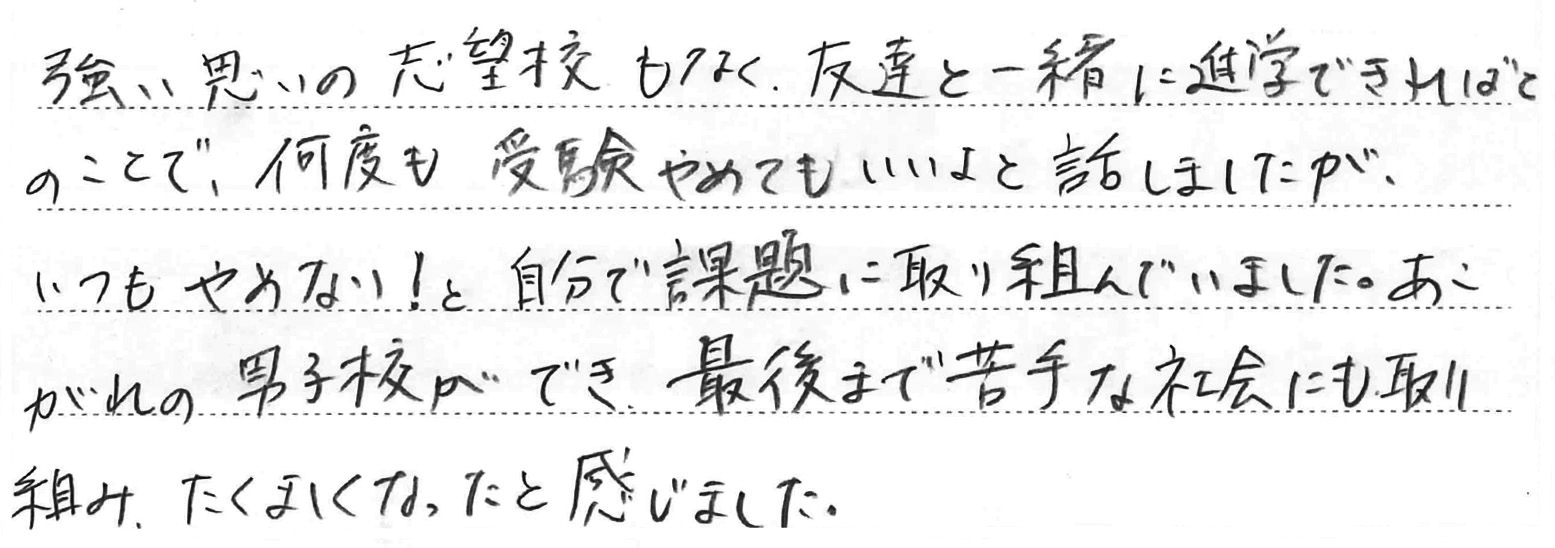 強い思いの志望校もなく、友達と一緒に進学できればと
のことで、何度も受験やめてもいいよと話しましたが、
いつもやめない!と自分で課題に取り組んでいました。あこ
がれの男子校ができ、最後まで苦手な社会にも取り
組み、たくましくなったと感じました。